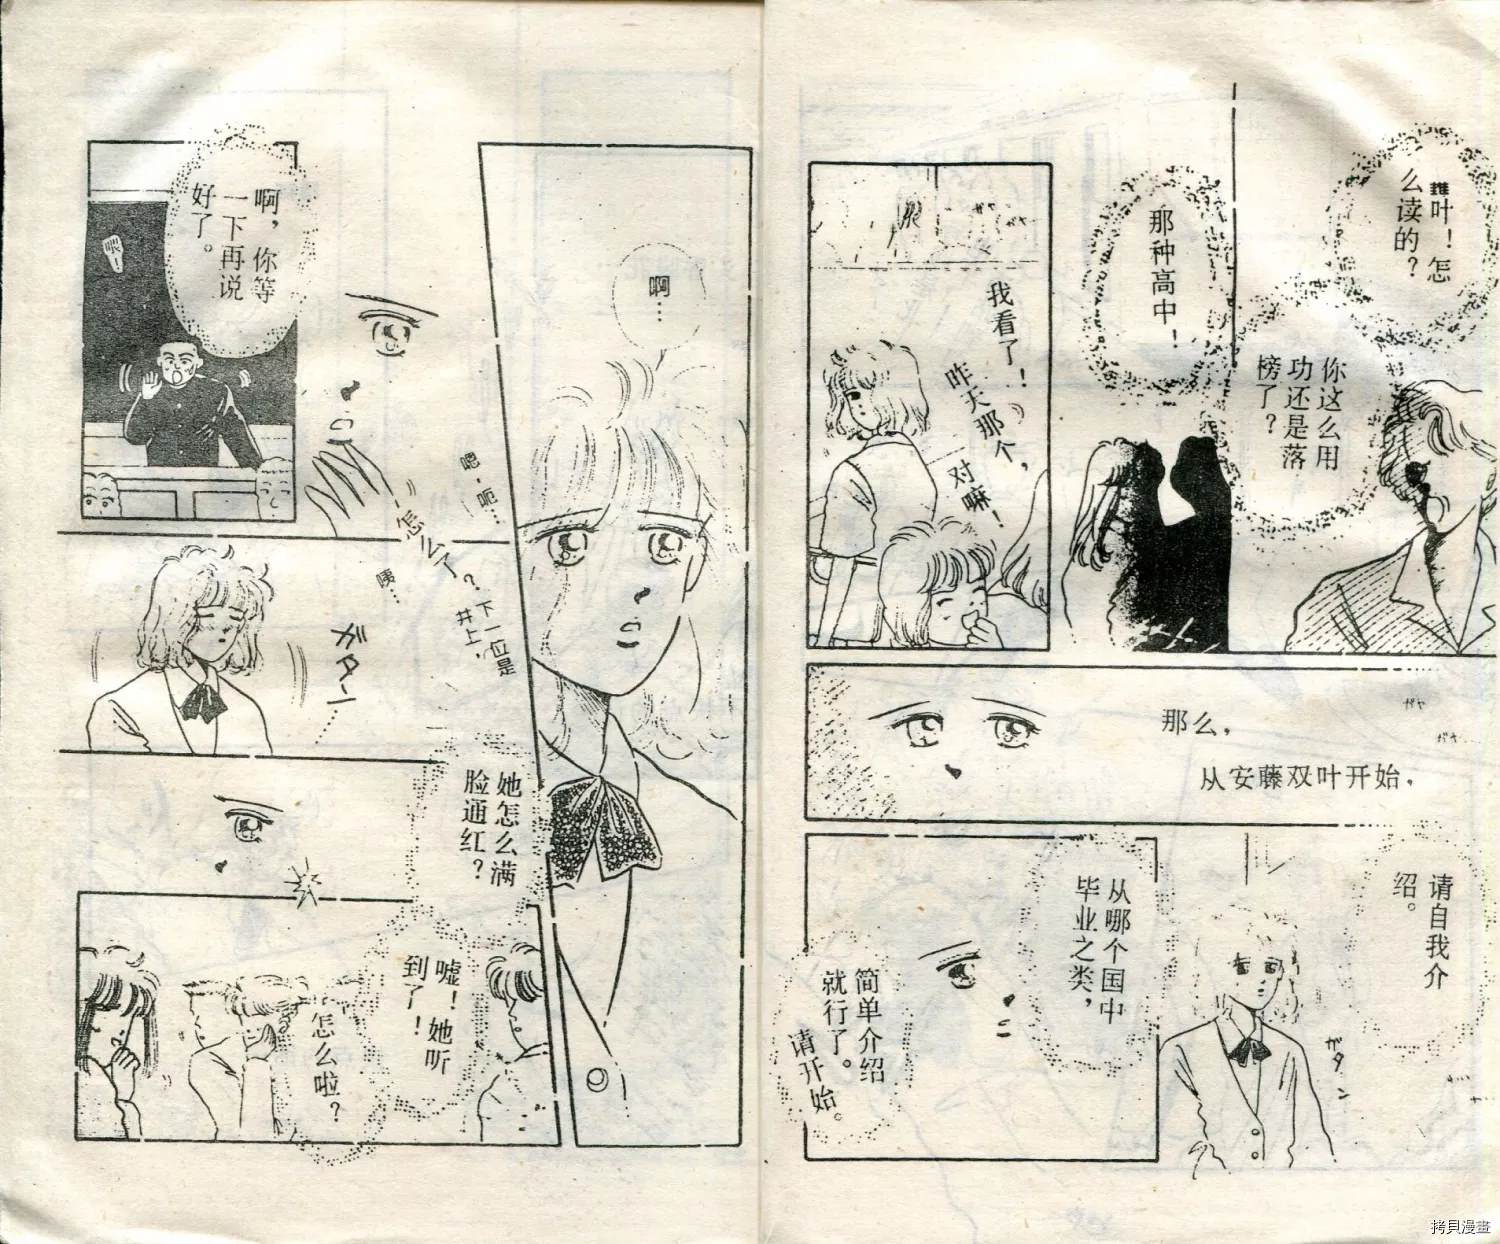 叶！怎
么读的？
那种高中！
你这么用
功还是落
榜了？
我看了！
昨天那个，
对嘛！
ガヤ
ガヤ
那么，
从安藤双叶开始，
请自我介
绍。
ガタン
从哪个国中
毕业之类，
简单介绍
就行了。
请开始。
啊…
啊，你等
一下再说
好了。
嗯·呃…
…怎么了？
咦…
下一位是
井上，
ガターン……
她怎么满
脸通红？
嘘！她听
到了！
怎么啦？
拷贝漫畫